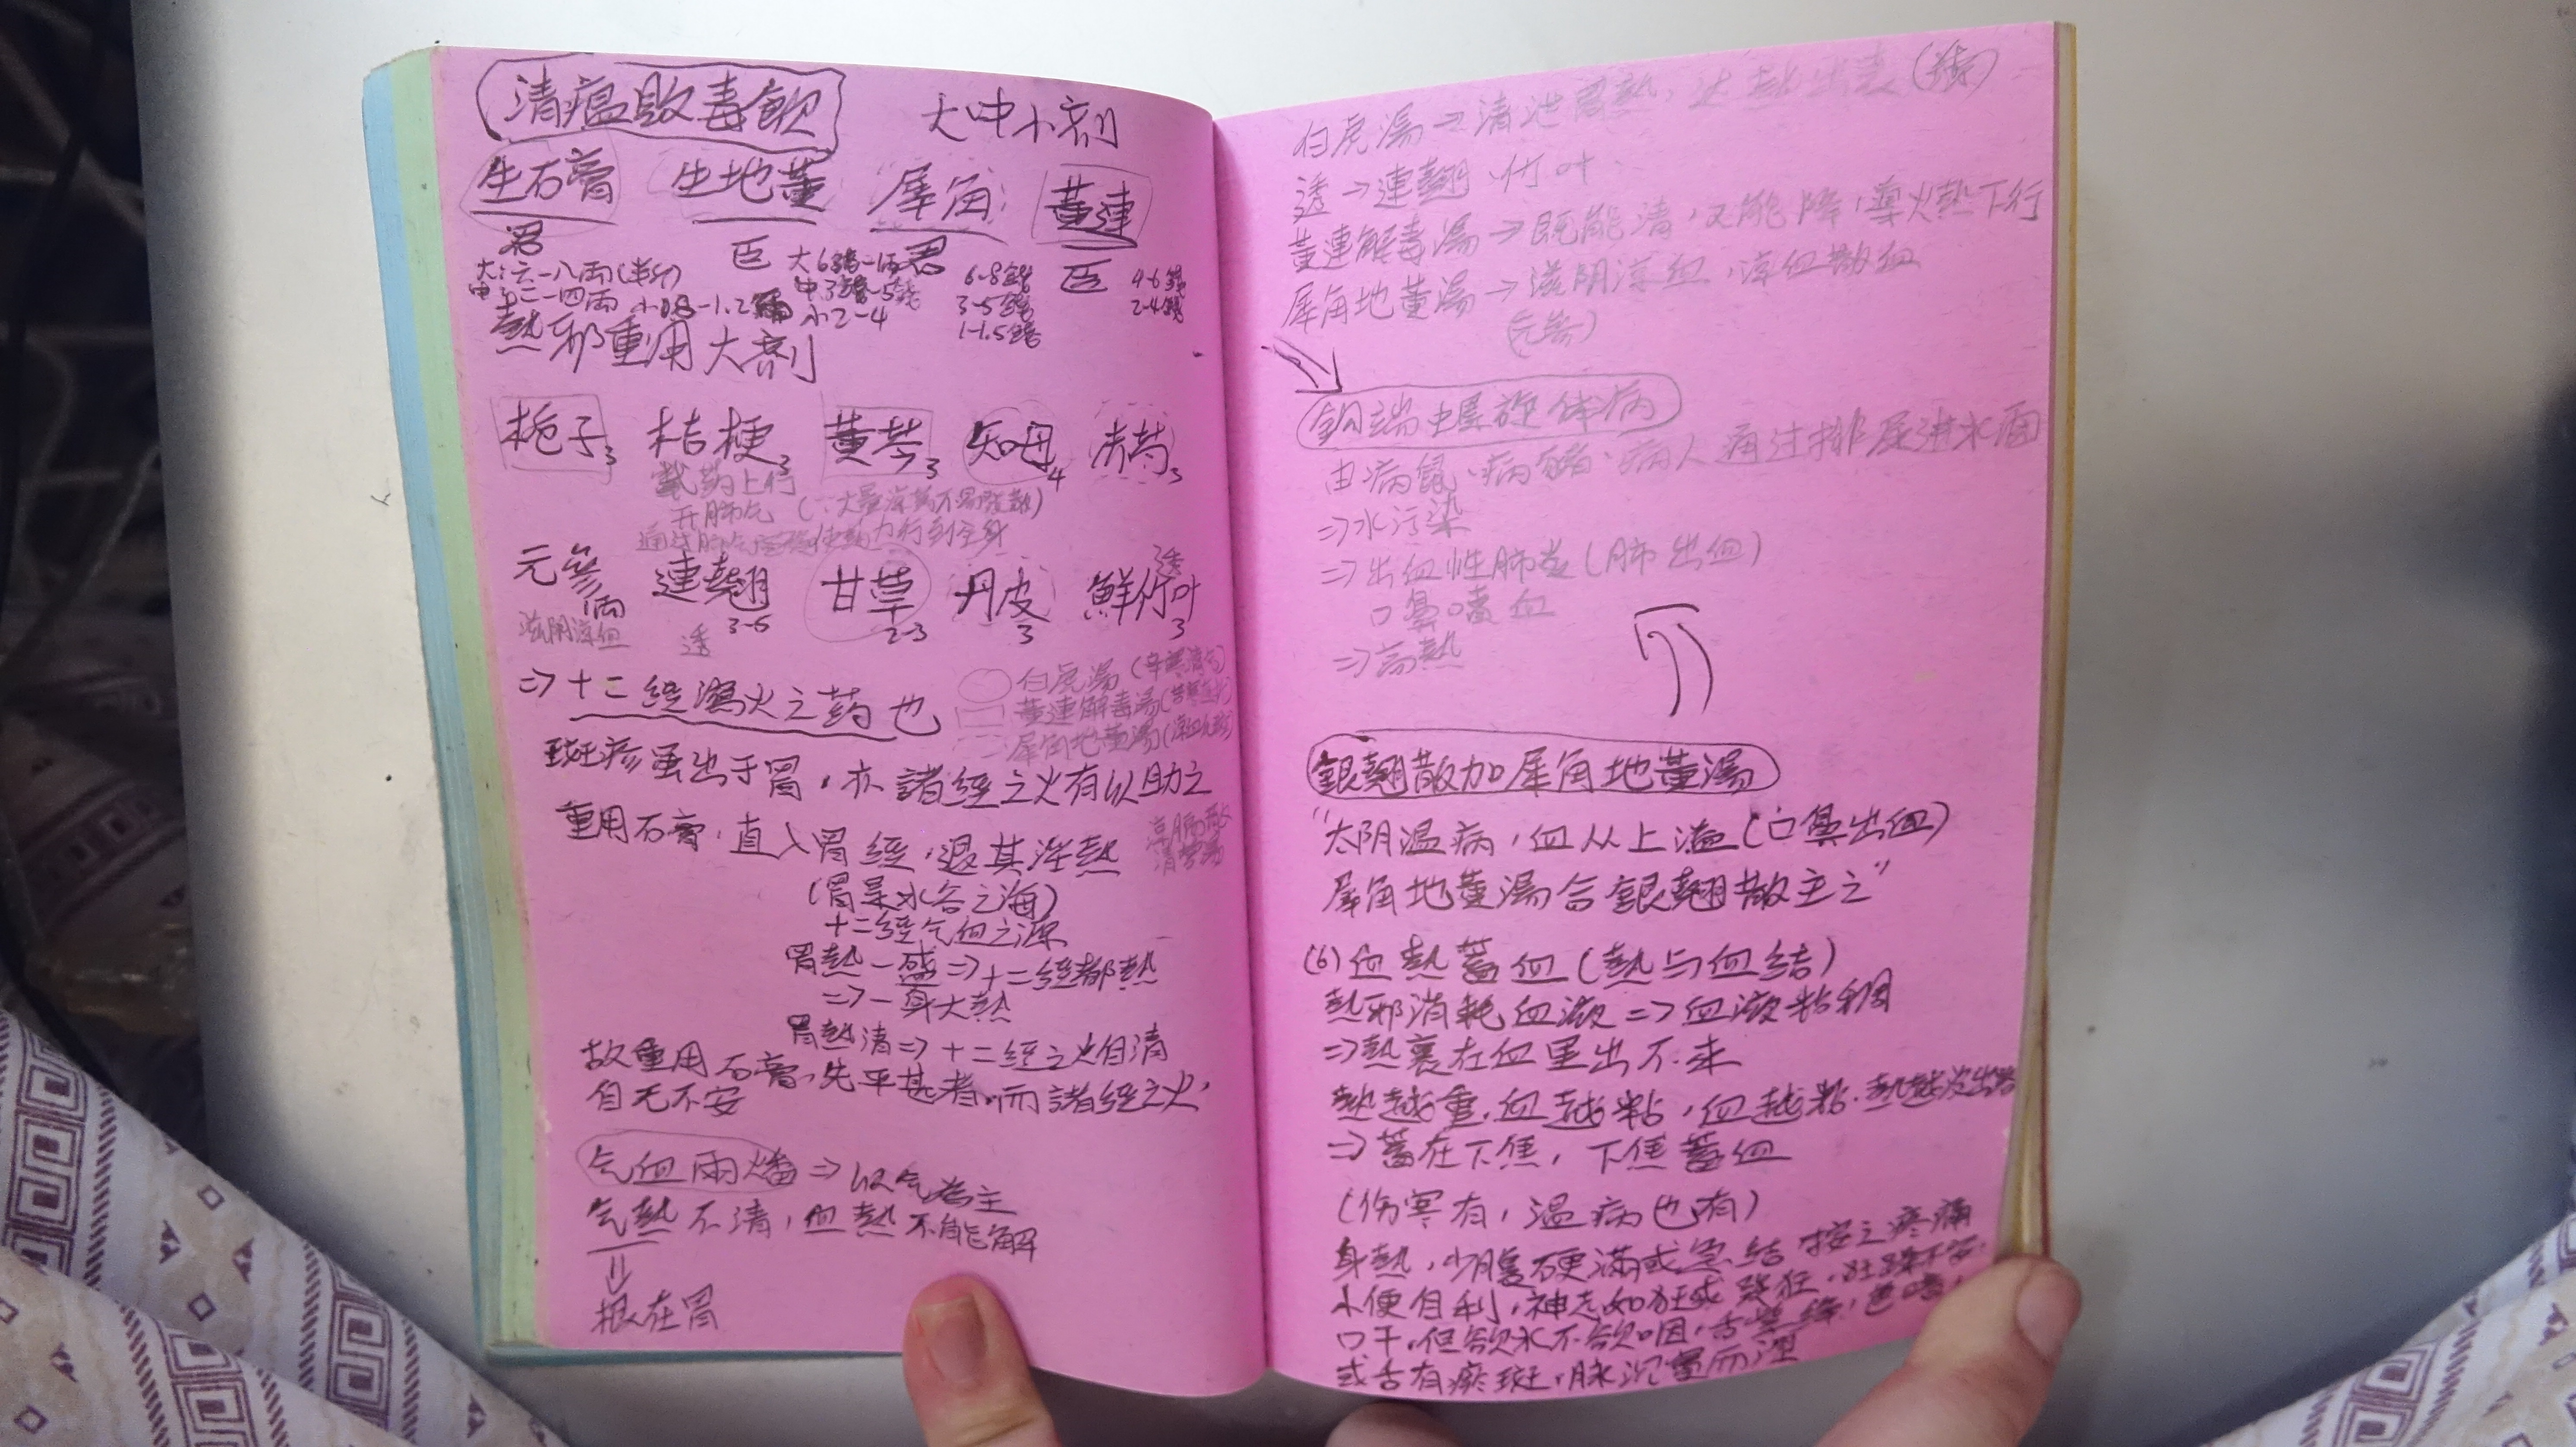 清瘟敗毒飲 大中小剂
生石膏 生地黄 犀角 黄連
君 臣 君 臣
大:六-八兩(半斤) 大6錢-1兩 6-8錢 4-6錢
中:二-四兩 小0.8-1.2兩 中3錢-5錢 3-5錢 2-4錢
小2-4 1-1.5錢
熱邪重用大剂
栀子3 桔梗3 黄芩3 知母4 赤芍3
載药上行
开肺气 (∵大量凉药不易發散)
通过肺气使药力行到全身
元參1兩 連翹3-6 甘草2-3 丹皮3 鮮竹叶3
滋阴凉血 透 透
⇒十二經瀉火之药也
○白虎湯(辛寒清气)
□黄連解毒湯(苦寒)
犀角地黄湯(凉血)
斑疹虽出于胃,亦諸經之火有以助之
重用石膏,直入胃經,退其淫熱
清營湯
(胃是水谷之海)
十二經气血之源
胃熱一盛⇒十二經都熱
⇒一身大熱
胃熱清⇒十二經之火自清
故重用石膏,先平甚者,而諸經之火,
自无不安
气血兩燔⇒以气為主
气熱不清,血熱不能解
⇓
根在胃
白虎湯→清泄胃熱,达熱出表
透→連翹、竹叶
黄連解毒湯→既能清,又能降,導火熱下行
犀角地黄湯→滋阴凉血,凉血散血
(元參)
钩端螺旋体病
由病鼠、病豬、病人通过排尿进水面
⇒水污染
⇒出血性肺炎(肺出血)
口鼻噴血
⇒高熱
銀翹散加犀角地黄湯
"太阴温病,血从上溢(口鼻出血)
犀角地黄湯合銀翹散主之"
(6)血熱蓄血(熱与血結)
熱邪消耗血液⇒血液粘稠
⇒熱裹在血里出不来
熱越重,血越粘,血越粘,熱越没出路
⇒蓄在下焦,下焦蓄血
(伤寒有,温病也有)
身熱,少腹硬滿或急結 按之疼痛
小便自利,神志如狂或發狂,狂躁不安
口干,但欲水不欲咽,舌紫绛,色暗
或舌有瘀斑,脉沉實而